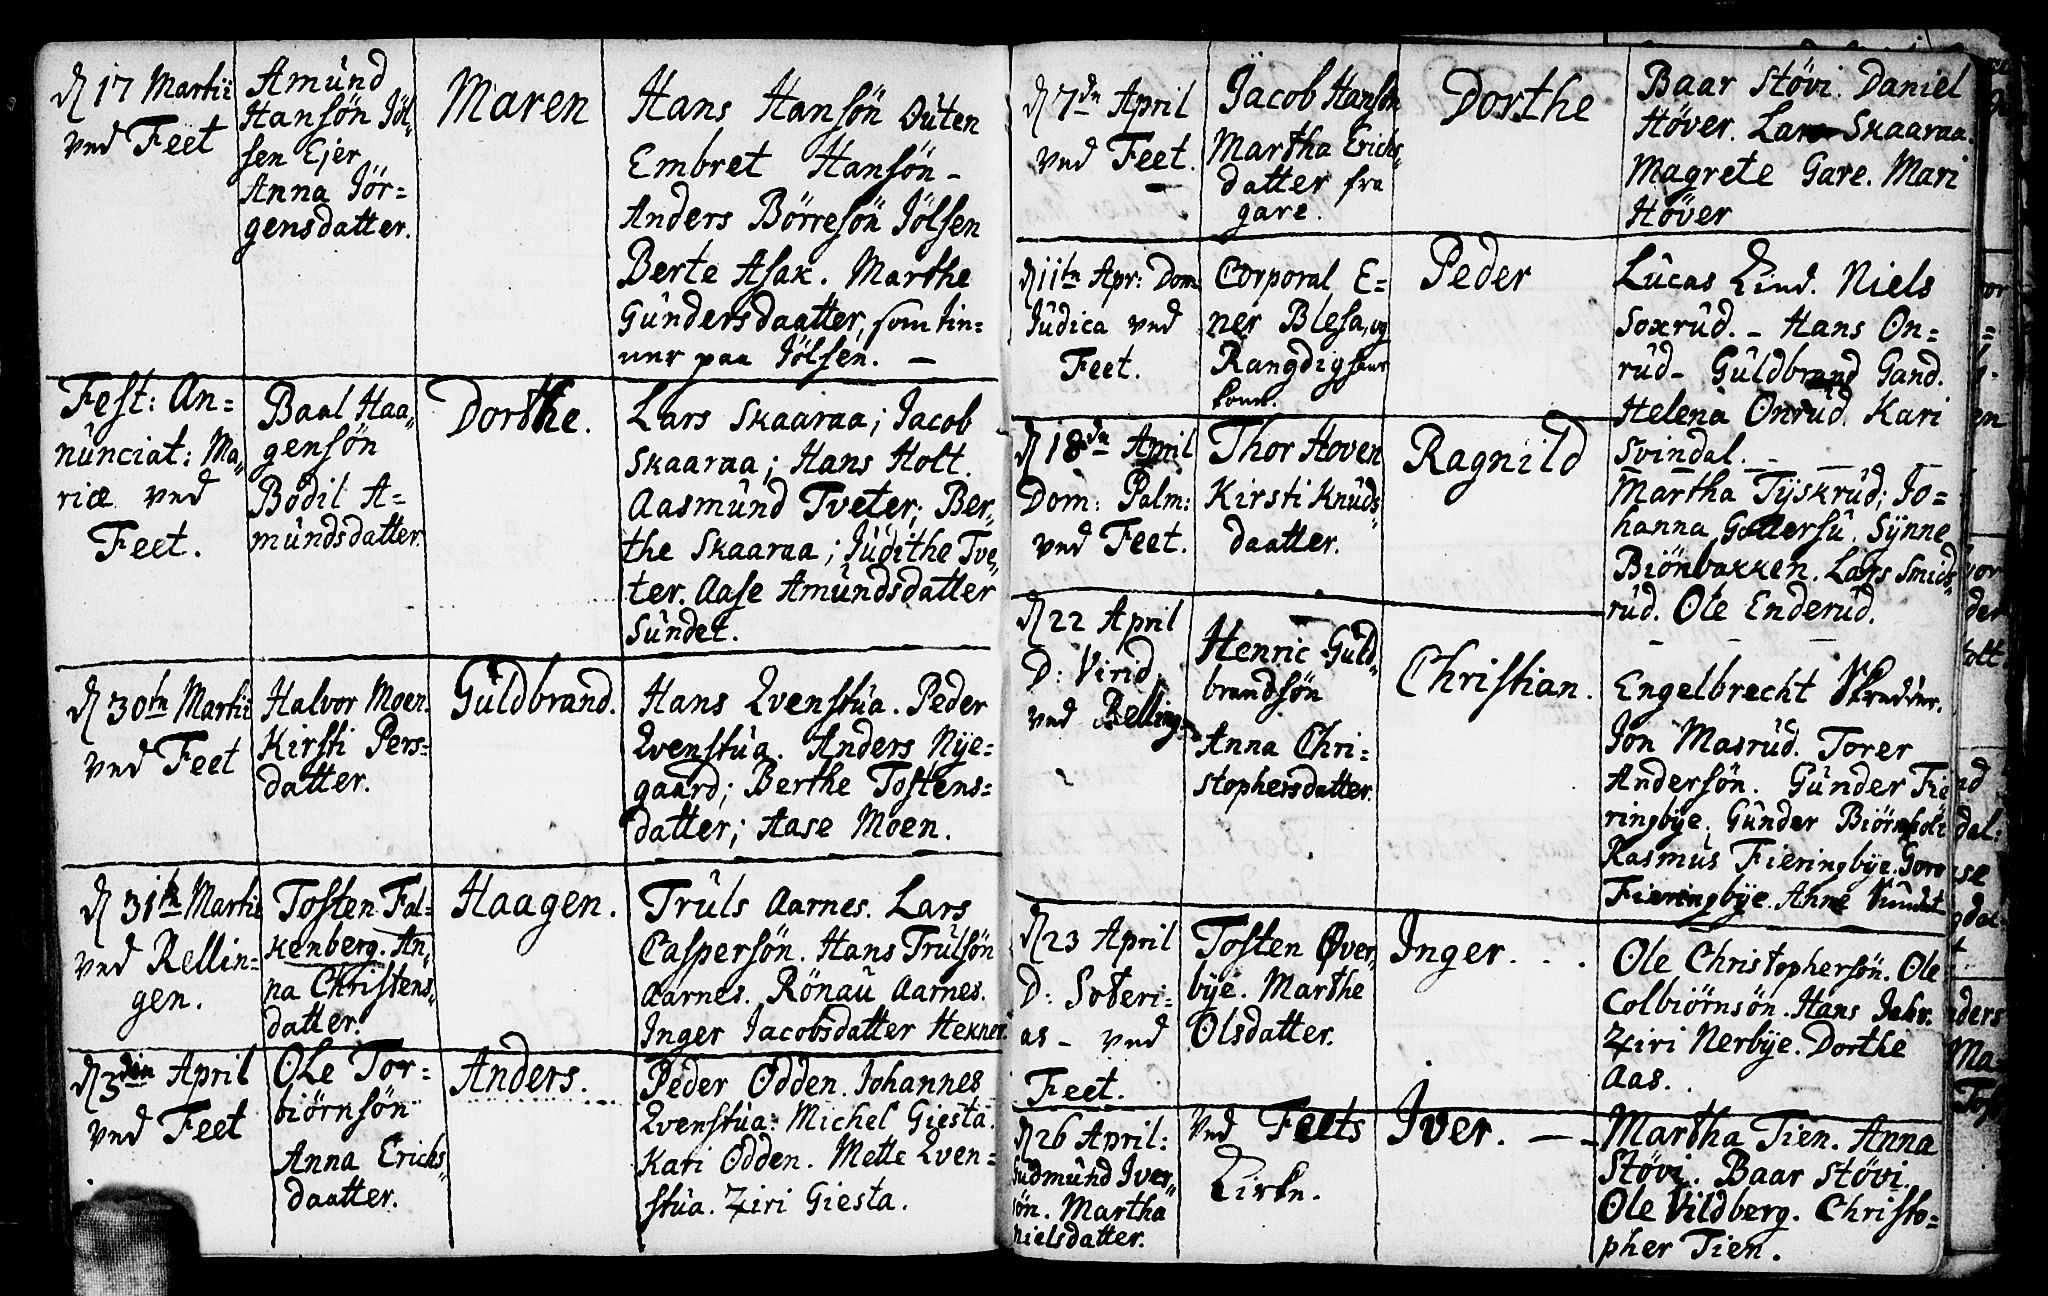 d 17 Martii
ved Feet
Amund
Hansön Jöl„
sen Ejer
Anna Jör=
gensdatter.
Maren
Hans Hansön Outen
Embret Hansön –
Anders Börresön Jölsen
Berte Asak. Marthe
Gundersdaatter, som tin=
ner paa Jölsen. –
Fest: An=
nunciat: Ma„
riæ ved
Feet.
Baal Haa„
gensön
Bodil A=
mundsdatter.
Dorthe.
Lars Skaaraa; Jacob
Skaaraa; Hans Holt.
Aasmund Tveter; Ber„
the Skaaraa; Judithe Tve„
ter. Aase Amundsdatter
Sundet.
d 30th Martii
ved Feet
Halvor Moen.
Kirsti Pers=
datter.
Guldbrand.
Hans Qvenstua. Peder
Qvenstua. Anders Nye=
gaard; Berthe Tostens=
datter; Aase Moen.
d 31th Martii
ved Rellin=
gen.
Tosten Fal=
kenberg. An„
na Christens„
datter.
Haagen.
Truls Aarnes. Lars
Caspersön. Hans Trulsön
Aarnes. Rönau Aarnes.
Inger Jacobsdatter Hexner.
d 3den April
ved Feet
Ole Tor=
biörnsön
Anna Erichs„
daatter.
Anders.
Peder Odden. Johannes
Qvenstua: Michel Giesta.
Kari Odden. Mette Qven=
stua. Ziri Giesta.
d 7de April
ved Feet.
Jacob Hansön
Martha Erichs„
datter fra
gare.
Dorthe
Baar Stövi. Daniel
Höver. Lars Skaaraa.
Magrete Gare. Mari
Höver
d 11te Apr: Dom
Judica ved
Feet.
Corporal E=
ner Blesa, og
Rangdig hans
kone.
Peder
Lucas Lind. Niels
Soxrud. – Hans On=
rud – Guldbrand Gand.
Helena Onrud. Kari
Svindal. –
d 18de April
Dom: Palm:
ved Feet.
Thor Hoven
Kirsti Knuds„
daatter.
Ragnild
Martha Tyskrud; Jo=
hanna Gollersu. Synne
Biönbakken. Lars Smids„
rud. Ole Enderud.
d 22 April
D: Virid.
ved Relling.
Henric Guld„
brandsön
Anna Chri=
stophersdatter.
Christian.
Engelbrecht Skredder.
Jon Masrud. Torer
Andersön. Gunder Fie
ringbÿe. Gunder Biörnholt
Rasmus Fieringbÿe. Goro
Fieringbÿe. Anne Sundet
d 23 April
D: Soteri=
as – ved
Feet.
Tosten Øver„
bÿe. Marthe
Olsdatter.
Inger. . .
Ole Christophersön. Ole
Colbiörnsön. Hans Jahr.
Ziri Nerbÿe. Dorthe
Aas.
d 26 April:
Gudmund Iver„
sön. Martha
Nielsdatter.
ved Feets
Kirke.
Iver. – –
Martha Tien. Anna
Stövi. Baar Stövi.
Ole Vildberg. Christo=
pher Tien.